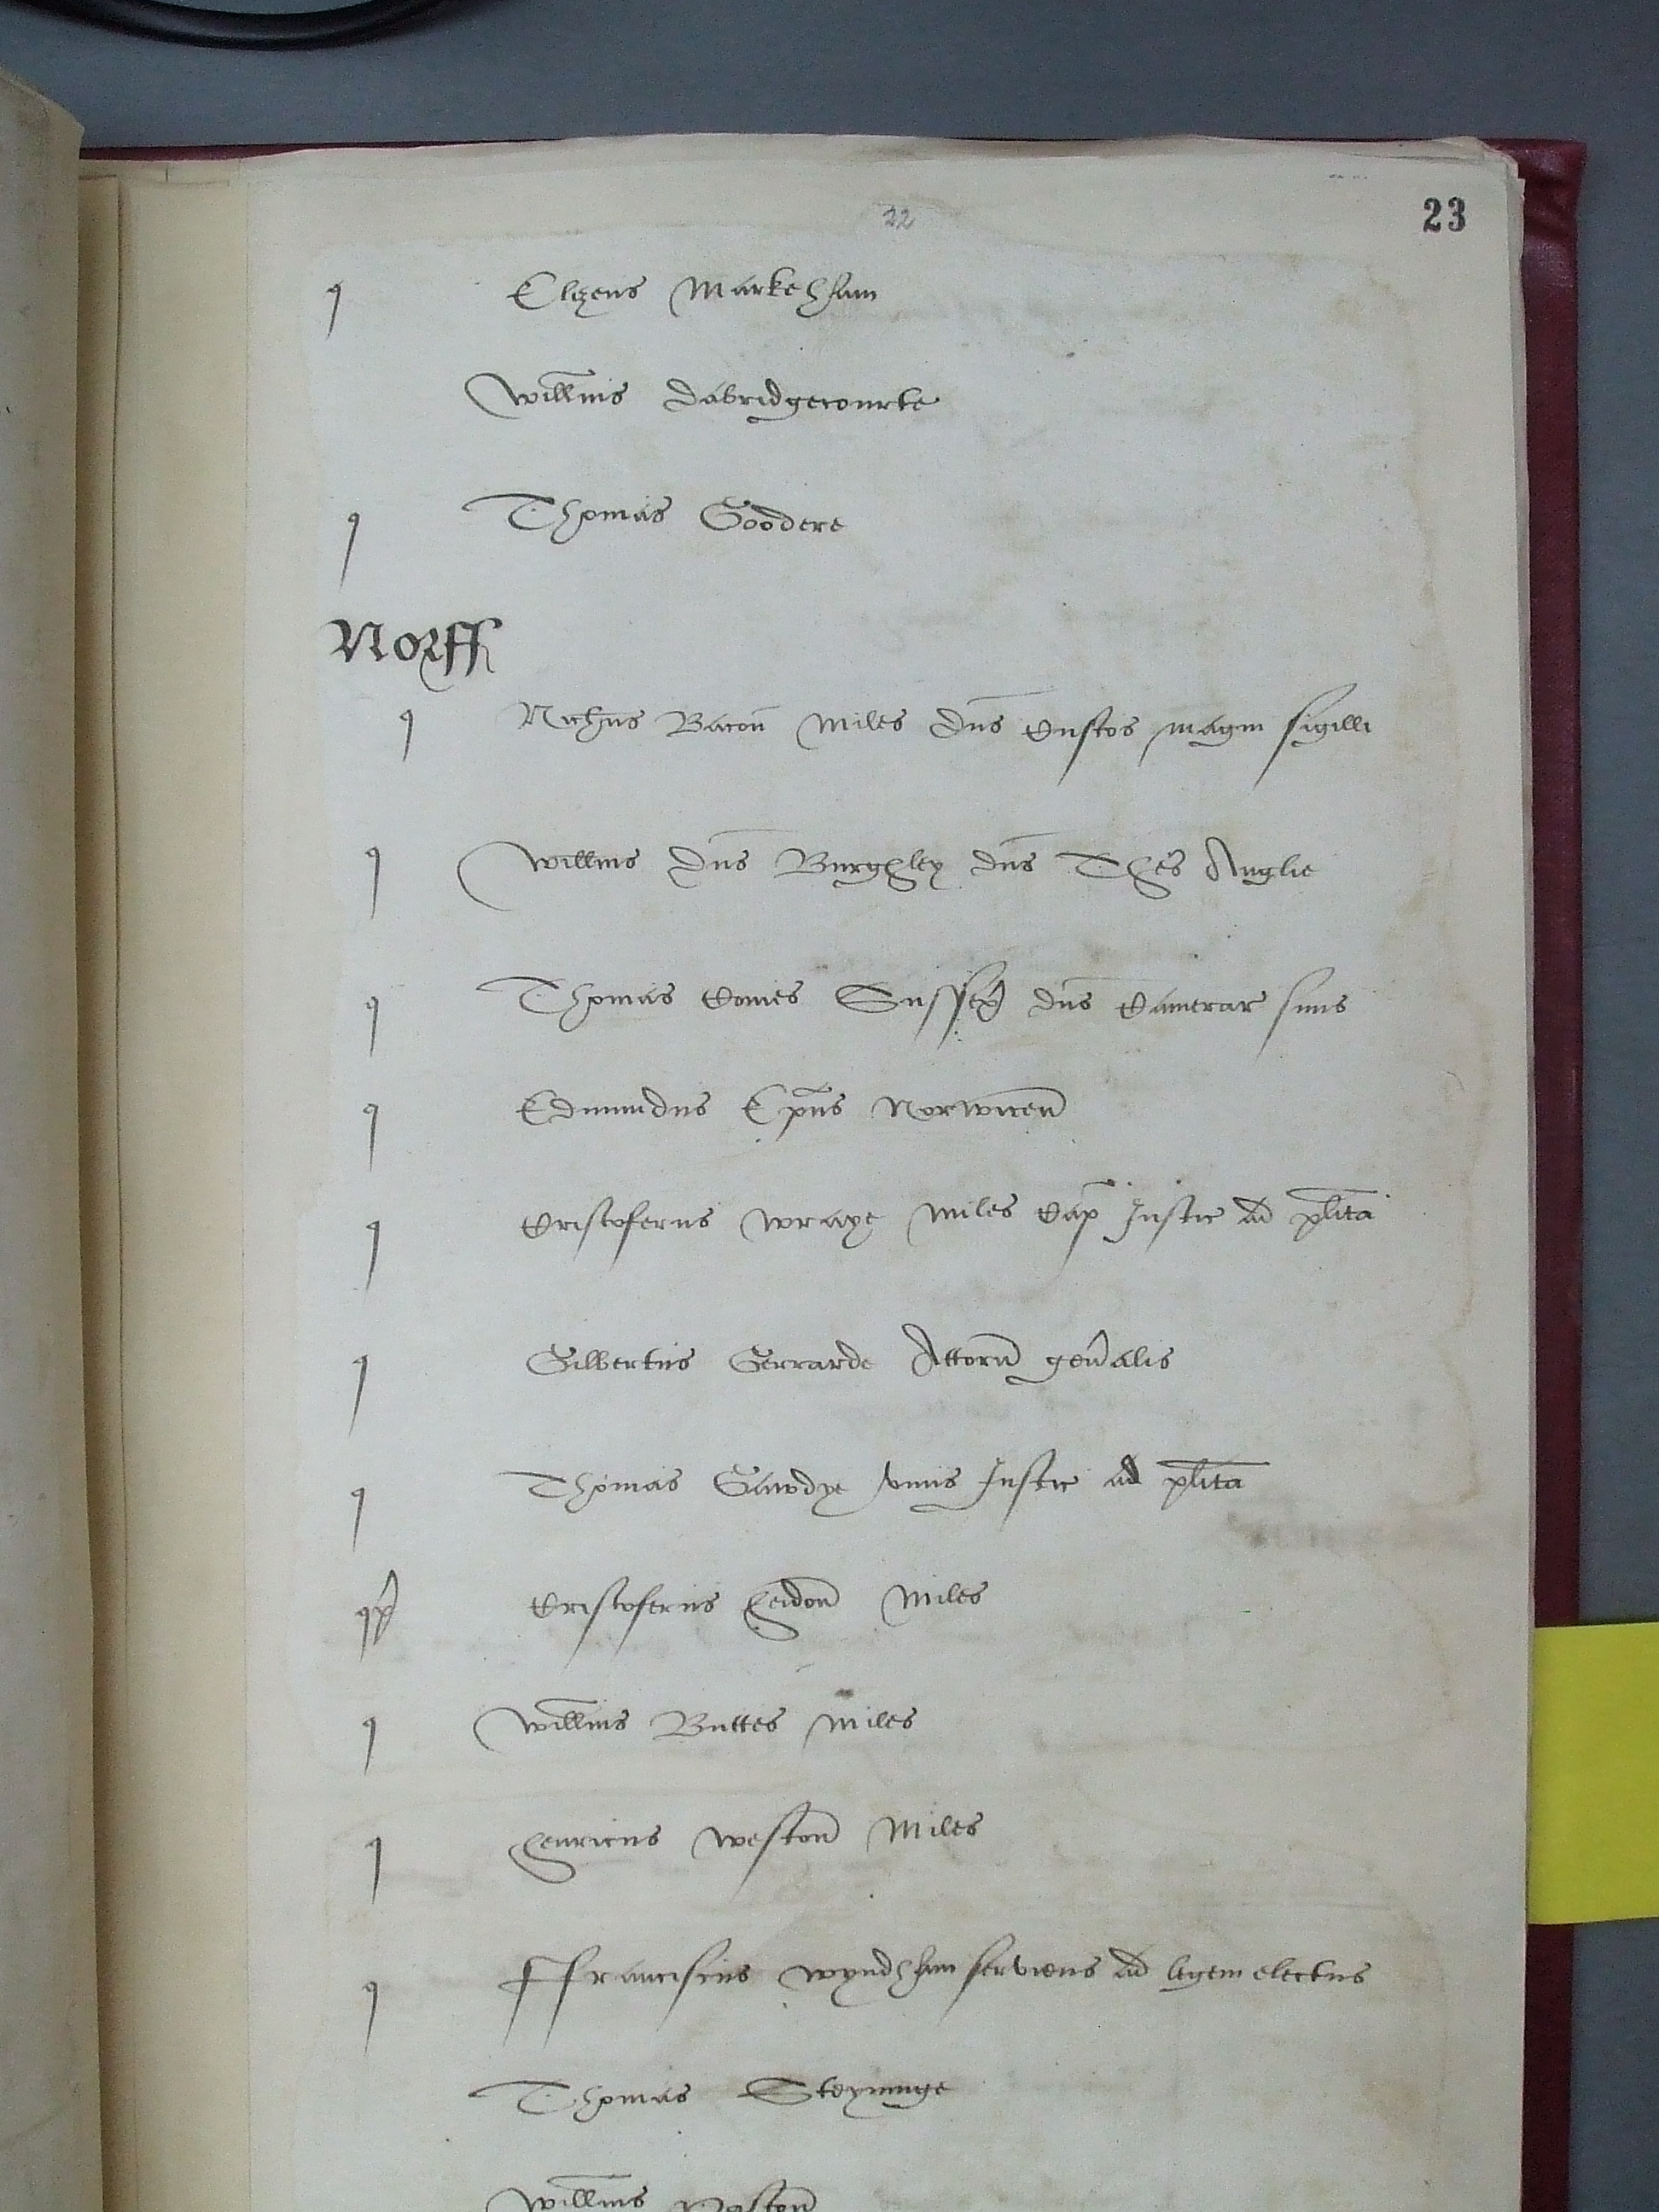 22
23
q Elizeus Markeham
Willms Dabridgecourte
q Thomas Goodere
Norff
q Nichus Bacon Miles dns Custos magni sigilli
q Willms dns Burghley dns Thes Anglie
q Thomas Comes Sussex dns Camerar suus
q Edmundus Epus Norwicen
q Cristoferus Wraye Miles Cap Justic ad plita
q Gilbertus Gerrarde Attorn genalis
q Thomas Gawdye unus Justic ad plita
Cristoferus Heidon Miles
q Willms Buttes Miles
q Henricus Weston Miles
q Ffranciscus Wyndham serviens ad legem electus
Thomas Steyninge
Willms Paston